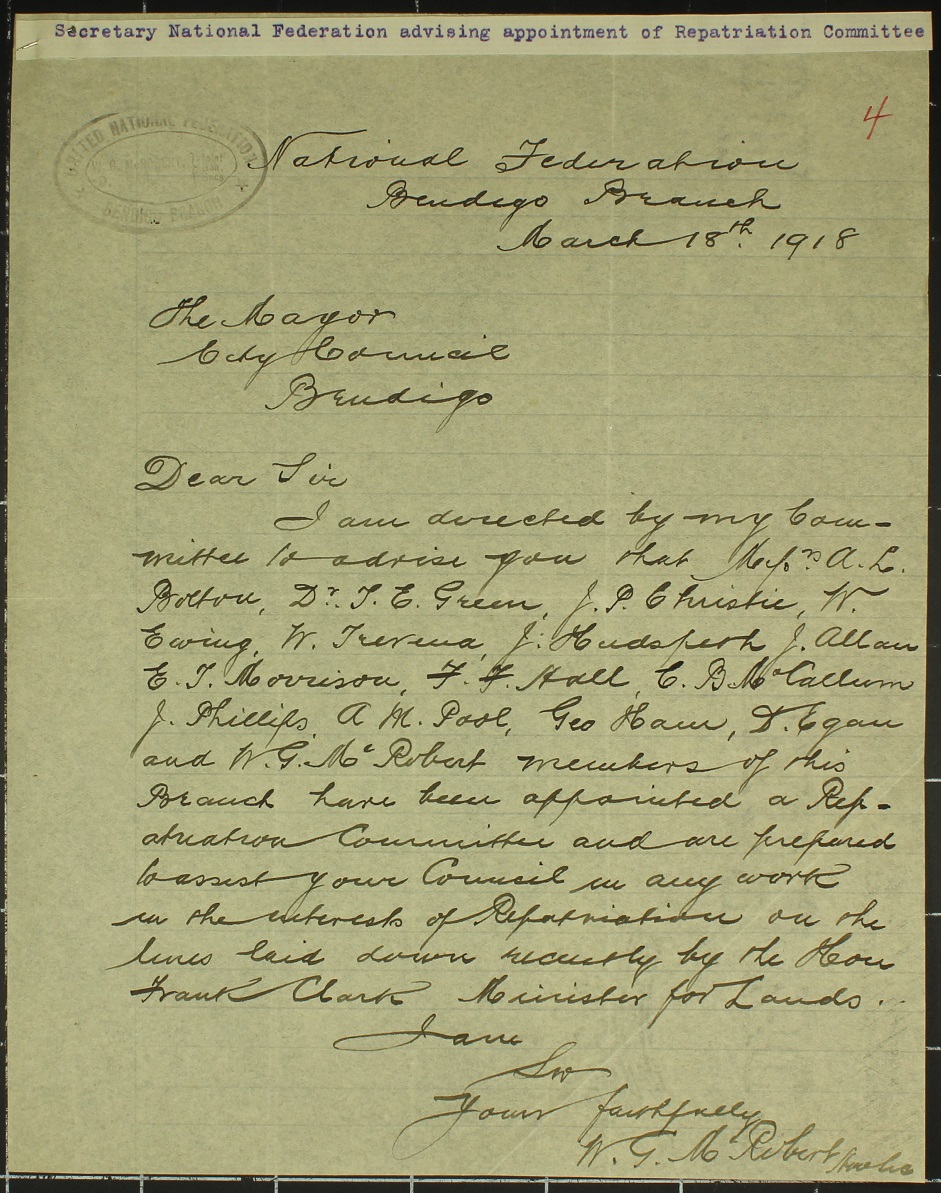 Secretary National Federation advising appointment of Repatriation Committee
4
UNITED NATIONAL FEDERATION
BENDIGO BRANCH
National Federation
Bendigo Branch
March 18th. 1918
The Mayor
City Council
Bendigo
Dear Sir
I am directed by my Com-
mittee to advise you that Messrs A. L.
Bolton, Dr. T. E. Green, J. P. Christie, W.
Ewing, W. Trevena, J. Hudspeth J. Allan
E. T. Morrison, F. F. Hall, C. B. McCallum
J. Phillips, A M. Pool, Geo Ham, D. Egan
and W. G. McRobert members of this
Branch have been appointed a Rep-
atriation Committee and are prepared
to assist your Council in any work
in the interests of Repatriation on the
lines laid down recently by the Hon
Frank Clark Minister for Lands.
I am
Sir
Yours faithfully
W. G. McRobert